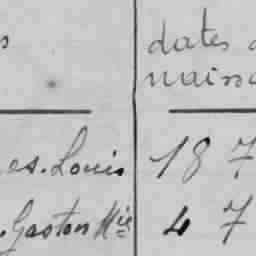 s dates d
naiss
es. Louis 18 7
. Gaston Mie 4 7